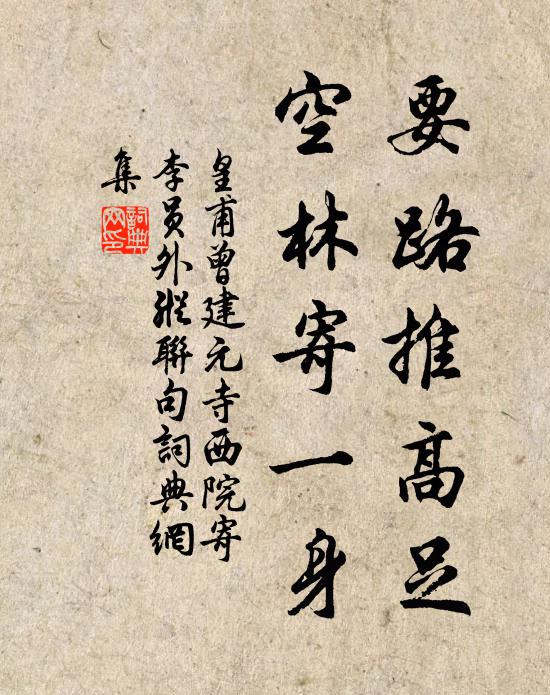 要路推高足
空林寄一身
皇甫曾建元寺西院寄
李员外纵聯句詞典網
集
詞典網印